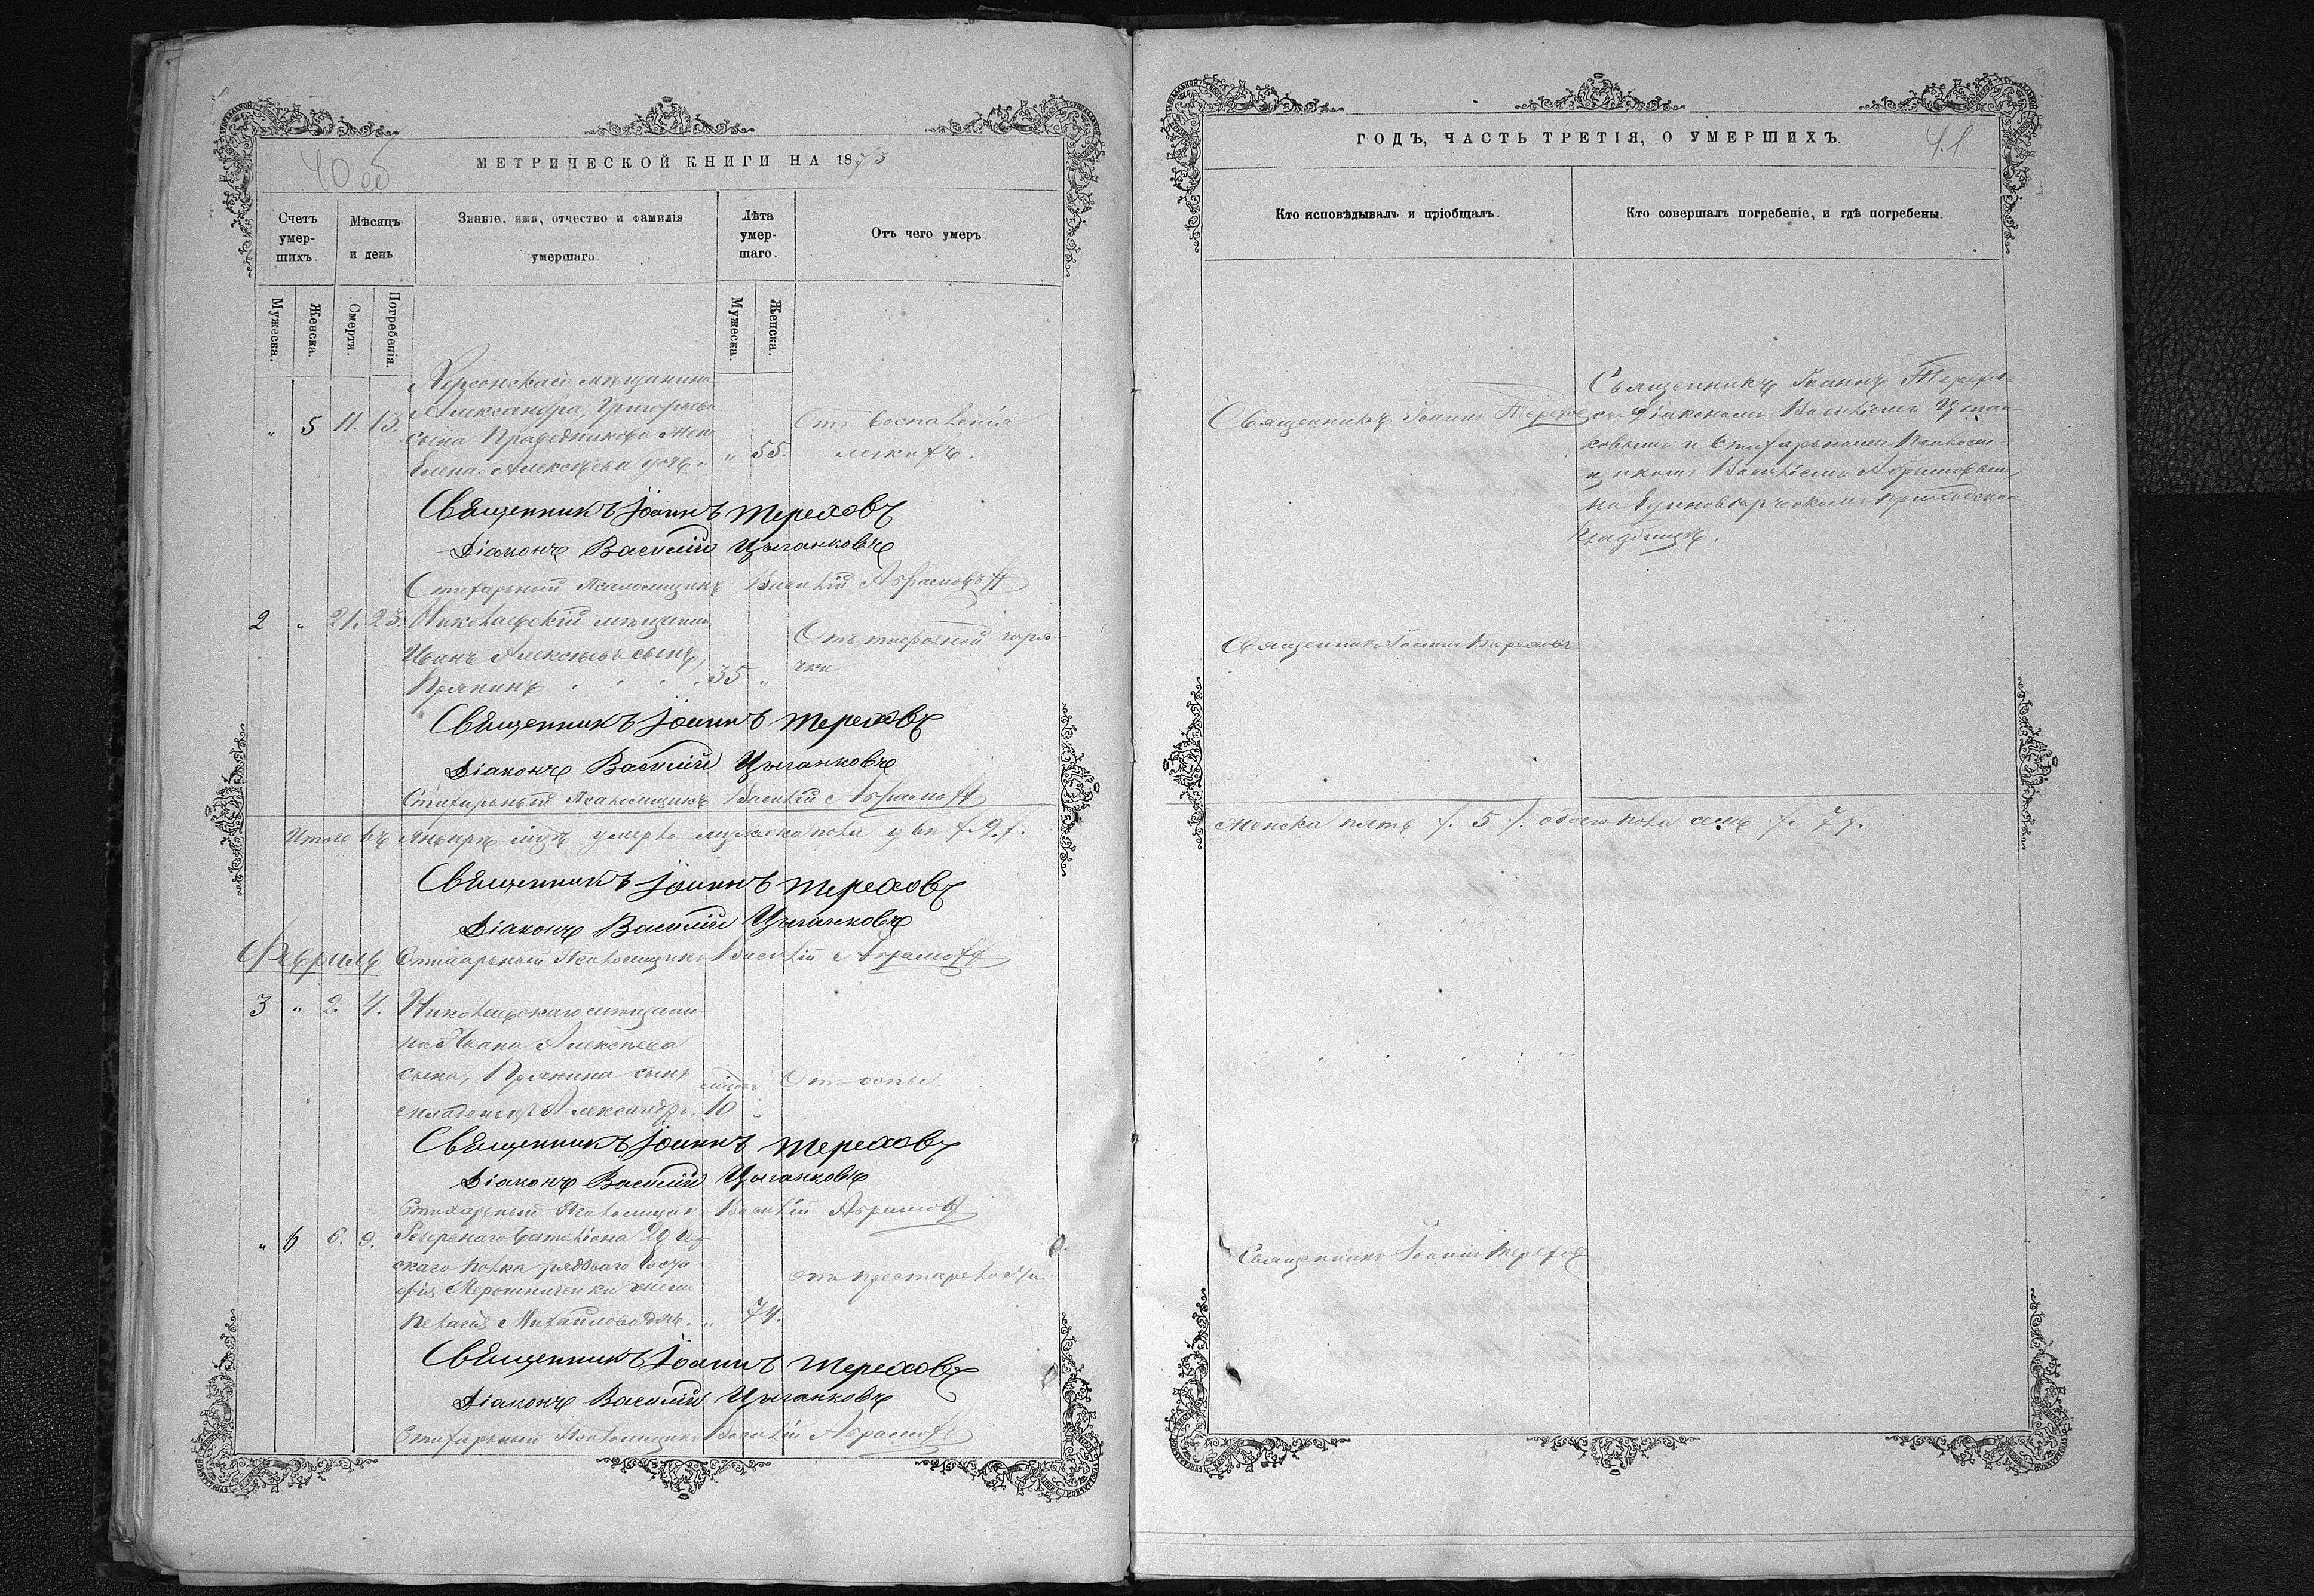 40 об
МЕТРИЧЕСКОЙ КНИГИ НА 1873
Счетъ умер-шихъ.
Мѣсяцъ и день
Званіе, имя, отчество и фамилія умершаго.
Лѣта умер-шаго.
Отъ чего умеръ
Мужеска.
Женска.
Смерти.
Погребенія.
Мужеска.
Женска.
Херсонскаго мѣщанина
Александра Григорьева
" 5 11. 13. сына жена Отъ воспаленія
Елена Алексѣева дочь " 55. легкихъ.
Священникъ Іоаннъ Тереховъ
Діаконъ Василій Цыганковъ
Стихарный Псаломщикъ Василій Абрамовъ
2 " 21. 23. Николаевскій мѣщанинъ
Иванъ Алексѣевъ сынъ, Отъ тифозной горя-
35 " чки
Священникъ Іоаннъ Тереховъ
Діаконъ Василій Цыганковъ
Стихарный Псаломщикъ Василій Абрамовъ
Итого въ Январѣ мцѣ умерло мужеска пола два /. 2. /.
Священникъ Іоаннъ Тереховъ
Діаконъ Василій Цыганковъ
Февраль Стихарный Псаломщикъ Василій Абрамовъ
3 " 2. 4. Николаевскаго мѣщани-
на Ивана Алексѣева
сына, сынъ мцовъ Отъ оспы.
младенецъ Александръ. 10 "
Священникъ Іоаннъ Тереховъ
Діаконъ Василій Цыганковъ
Стихарный Псаломщикъ Василій Абрамовъ
" 6 6. 9. Резервнаго баталіона
скаго полка рядоваго
жена отъ престарелости
Пелагія Михайлова дочь. " 74.
Священникъ Іоаннъ Тереховъ
Діаконъ Василій Цыганковъ
Стихарный Псаломщикъ Василій Абрамовъ
ГОДЪ, ЧАСТЬ ТРЕТІЯ, О УМЕРШИХЪ. 41
Кто исповѣдывалъ и пріобщалъ.
Кто совершалъ погребеніе, и гдѣ погребены.
Священникъ Іоаннъ Терехов
Священникъ Іоаннъ Терехов
съ Діакономъ Василіемъ Цыган-
ковымъ и Стихарнымъ Псалом-
щикомъ Василіемъ Абрамовымъ
на Единовѣрческомъ приходском
кладбищѣ.
Священникъ Іоаннъ Тереховъ
Женска пять /. 5 /. обоего пола семь /. 7 /.
Священникъ Іоаннъ Терехов